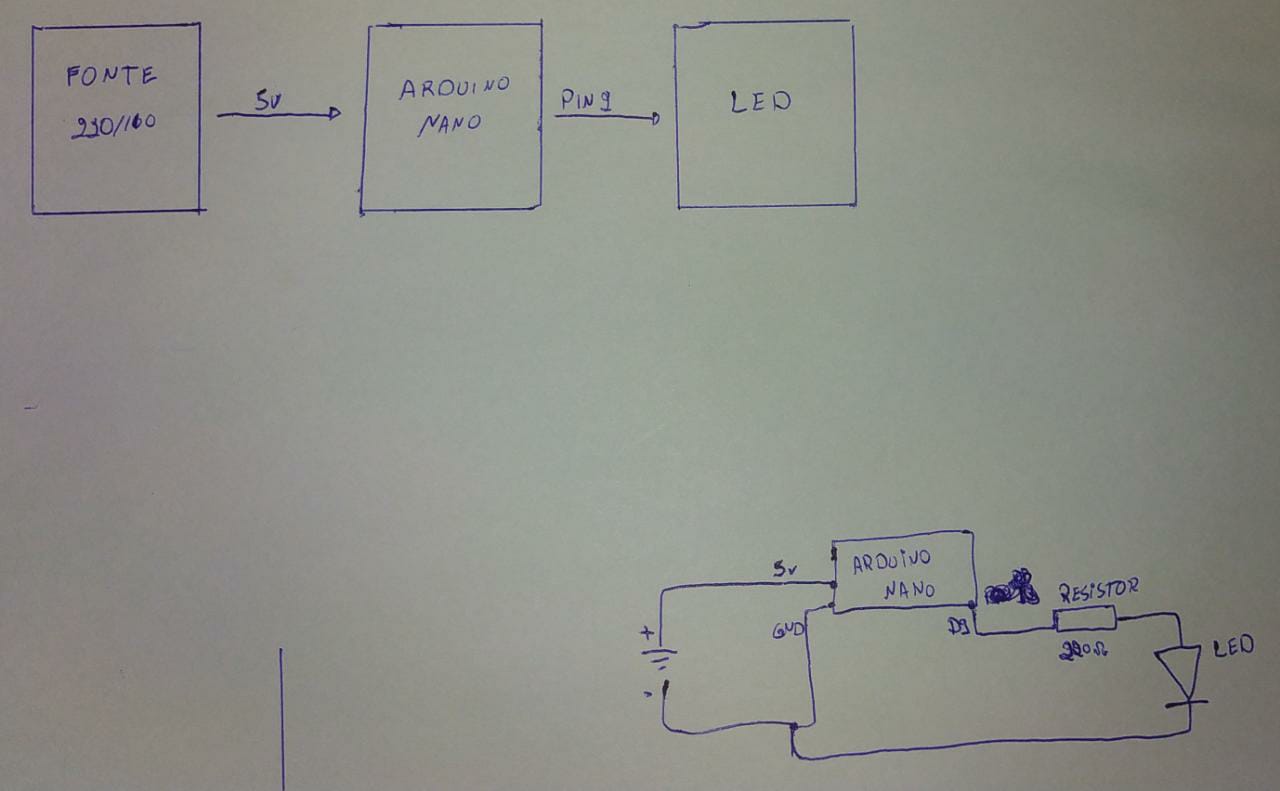 FONTE
5V
ARDUINO
NANO
PIN9
LED
5V
ARDUINO
NANO
GND
D9
RESISTOR
220Ω
LED
+
-